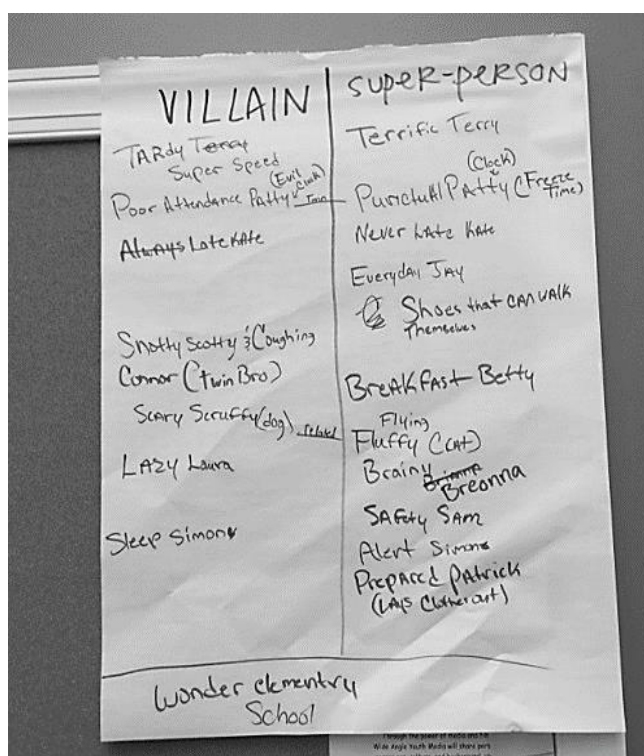 VILLAIN
TARdy Terry
Super Speed
(Evil
Clock)
Poor Attendance Patty
Always Late Kate
Snotty Scotty & Coughing
Connor (twin Bro)
Scary Scruffy (dog) related
LAzy Laura
Sleep Simon
SUPER-PERSON
Terrific Terry
(Clock)
Punctual Patty (Freeze
Time)
Never Late Kate
Everyday Jay
Shoes that CAN WALK
Themselves
BreakFast Betty
Flying
Fluffy (CAT)
Brainy
Breonna
SAfety SAm
Alert Simone
Prepared Patrick
(LAYS Clothes out)
Wonder elementry
School
Through the power of media and
Wide Angle Youth Media will share